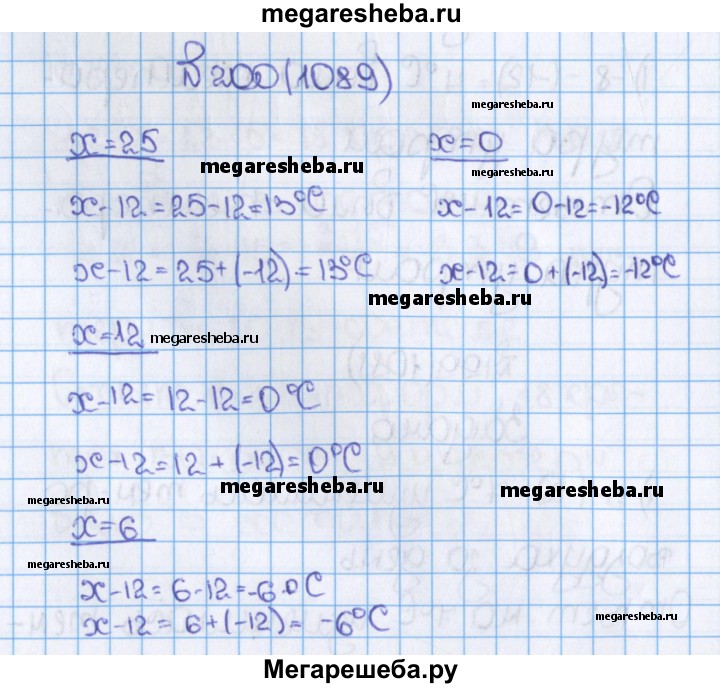 megaresheba.ru
№ 200 (1089)
megaresheba.ru
x = 25
x = 0
megaresheba.ru
megaresheba.ru
x - 12 = 25 - 12 = 13°C
x - 12 = 0 - 12 = -12°C
x - 12 = 25 + (-12) = 13°C
x - 12 = 0 + (-12) = -12°C
megaresheba.ru
x = 12
megaresheba.ru
x - 12 = 12 - 12 = 0°C
x - 12 = 12 + (-12) = 0°C
megaresheba.ru
megaresheba.ru
megaresheba.ru
x = 6
megaresheba.ru
x - 12 = 6 - 12 = -6°C
x - 12 = 6 + (-12) = -6°C
megaresheba.ru
Мегарешеба.ру